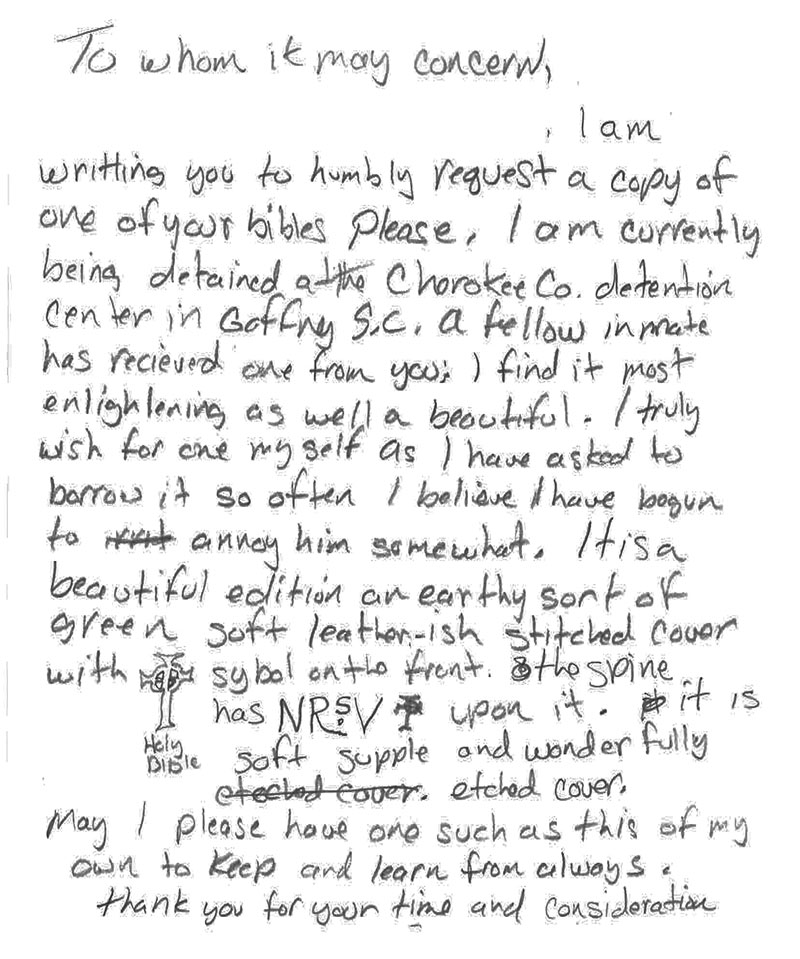 To whom it may concern,
I am
writting you to humbly request a copy of
one of your bibles please. I am currently
being detained at the Chorokee Co. detention
Center in Gaffny S.C. a fellow inmate
has recieved one from you; I find it most
enlightening as well a beautiful. I truly
wish for one myself as I have asked to
borrow it so often I believe I have begun
to annoy him somewhat. It is a
beautiful edition an earthy sort of
green soft leather-ish stitched cover
with sybol on the front. the spine
has NRSV upon it. it is
Holy Bible
soft supple and wonderfully
etched cover. etched cover.
May I please have one such as this of my
own to keep and learn from always.
thank you for your time and consideration